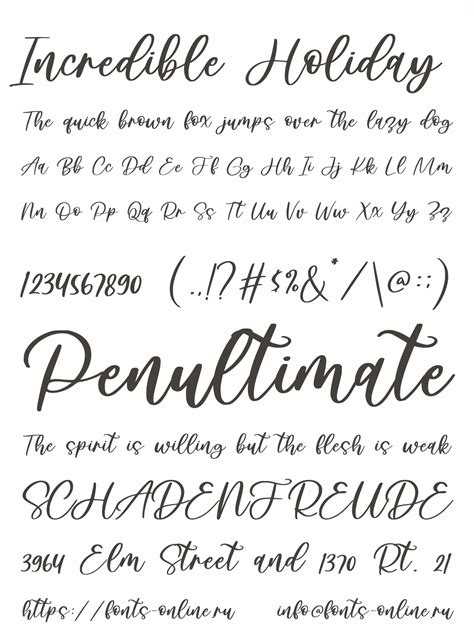 Incredible Holiday
The quick brown fox jumps over the lazy dog
Aa Bb Cc Dd Ee Ff Gg Hh Ii Jj Kk Ll Mm
Nn Oo Pp Qq Rr Ss Tt Uu Vv Ww Xx Yy Zz
1234567890 (.,!?#$%&*/\@:;)
Penultimate
The spirit is willing but the flesh is weak
SCHADENFREUDE
3964 Elm Street and 1370 Rt. 21
https://fonts-online.ru info@fonts-online.ru